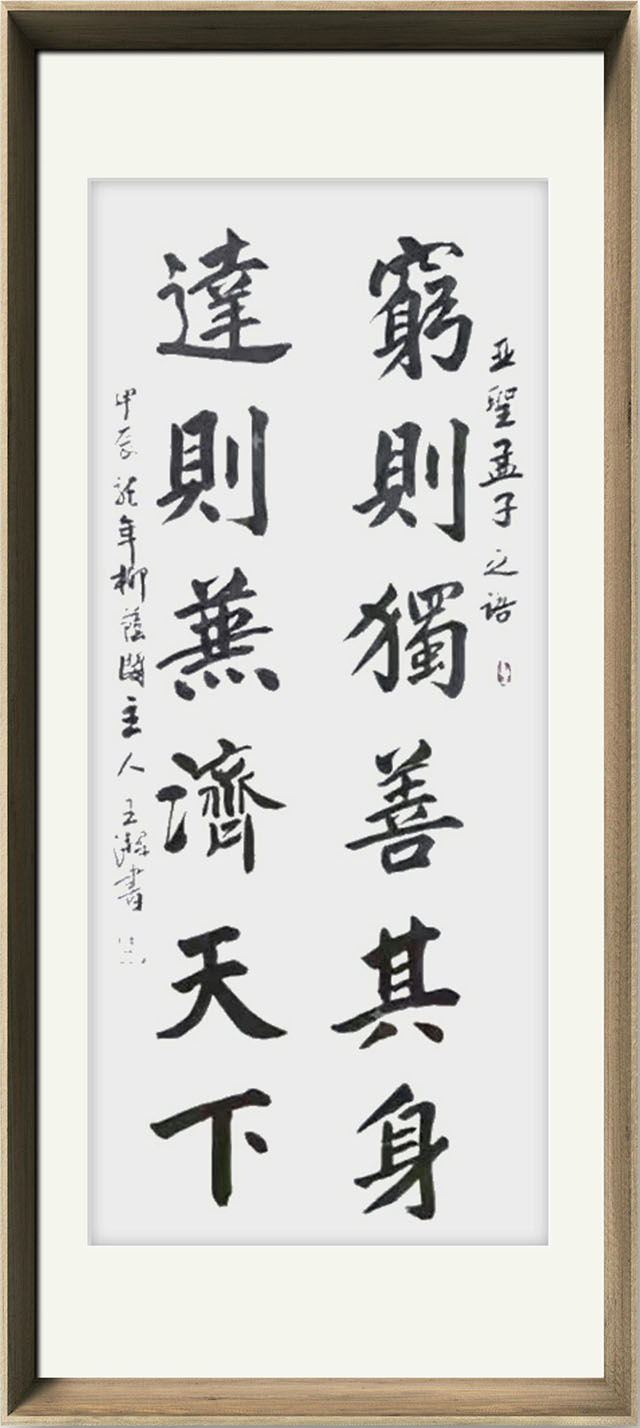 亞聖孟子之語
窮則獨善其身
達則蒹濟天下
甲辰龍年柳蔭閣主人王瀚書